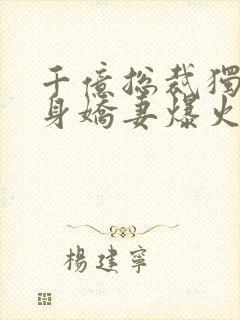 千億總裁獨
身嬌妻爆火
楊建寧